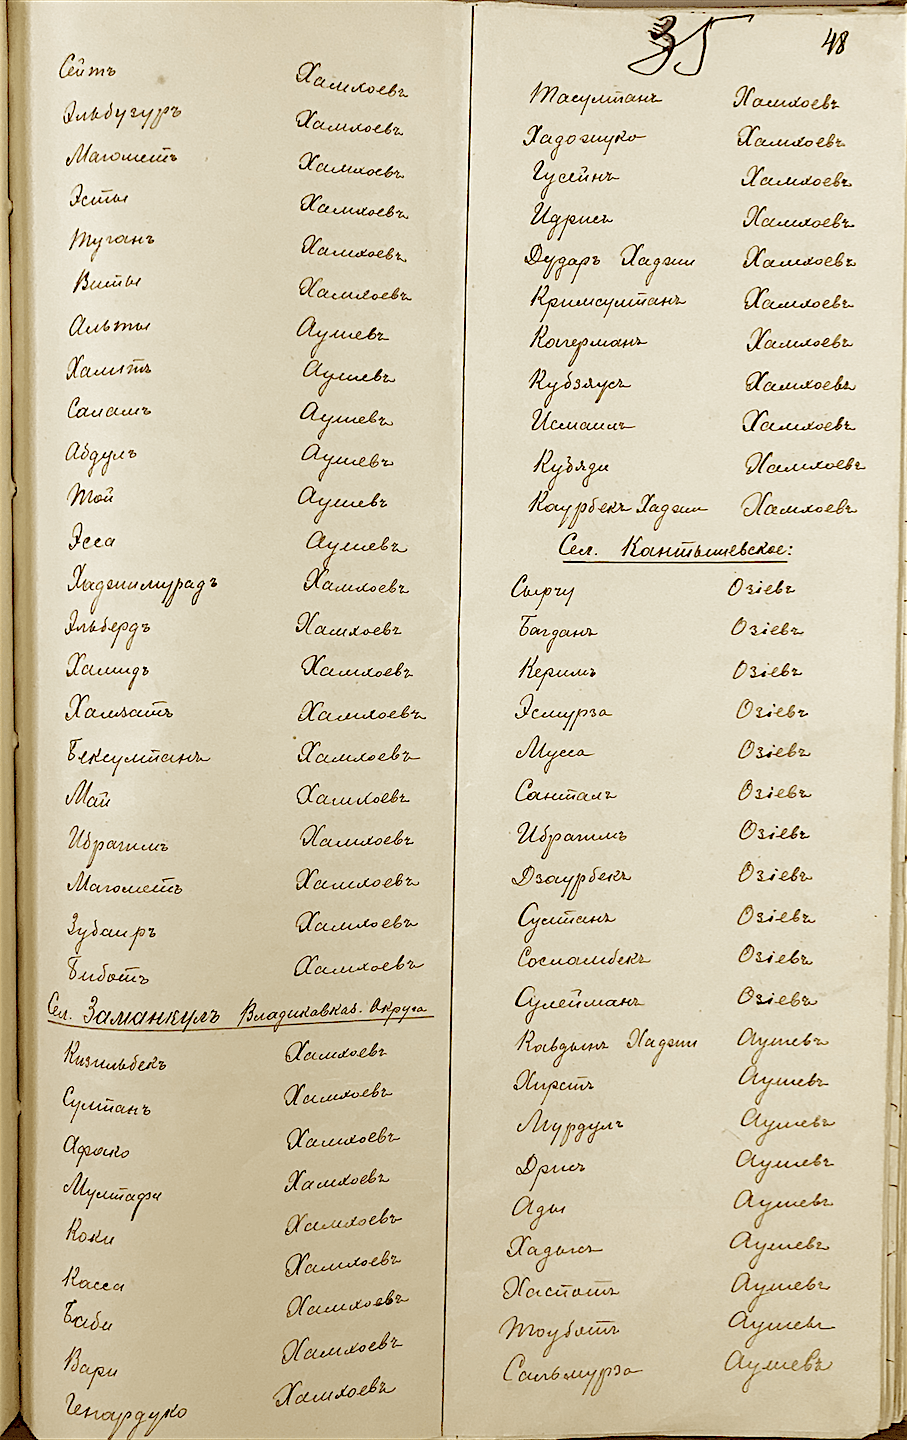 Сеитъ Хамхоевъ
Эльбузуръ Хамхоевъ
Магометъ Хамхоевъ
Эсты Хамхоевъ
Туганъ Хамхоевъ
Виты Хамхоевъ
Альты Аушевъ
Хамитъ Аушевъ
Саламъ Аушевъ
Абдулъ Аушевъ
Той Аушевъ
Эсса Аушевъ
Хаджимурадъ Хамхоевъ
Эльбердъ Хамхоевъ
Хамидъ Хамхоевъ
Хамзатъ Хамхоевъ
Бексултанъ Хамхоевъ
Май Хамхоевъ
Ибрагимъ Хамхоевъ
Магометъ Хамхоевъ
Зубаиръ Хамхоевъ
Биботъ Хамхоевъ
Сел. Заманкулъ Владикавказ. Округа
Кизильбекъ Хамхоевъ
Султанъ Хамхоевъ
Афако Хамхоевъ
Хамхоевъ
Коки Хамхоевъ
Касса Хамхоевъ
Баби Хамхоевъ
Вари Хамхоевъ
Генардуко Хамхоевъ
35
48
Тасултанъ Хамхоевъ
Хадожуко Хамхоевъ
Гусейнъ Хамхоевъ
Идрисъ Хамхоевъ
Дударъ Хаджи Хамхоевъ
Кримсултанъ Хамхоевъ
Кагерманъ Хамхоевъ
Хамхоевъ
Исмаилъ Хамхоевъ
Кубяди Хамхоевъ
Каурбекъ Хаджи Хамхоевъ
Сел. Кантышевское:
Сырчу Озіевъ
Багданъ Озіевъ
Керимъ Озіевъ
Эсмурза Озіевъ
Мусса Озіевъ
Санталъ Озіевъ
Ибрагимъ Озіевъ
Дзаурбекъ Озіевъ
Султанъ Озіевъ
Сосламбекъ Озіевъ
Сулейманъ Озіевъ
Кавдынъ Хаджи Аушевъ
Хирстъ Аушевъ
Мурдулъ Аушевъ
Дрисъ Аушевъ
Ады Аушевъ
Хадысъ Аушевъ
Хаспотъ Аушевъ
Тоуботъ Аушевъ
Сальмурза Аушевъ